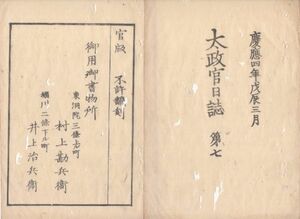 慶應四年戊辰三月
太政官日誌 第七
官版 不許翻刻
御用御書物所
東洞院三條上町
村上勘兵衛
堀川二條下ル町
井上治兵衛